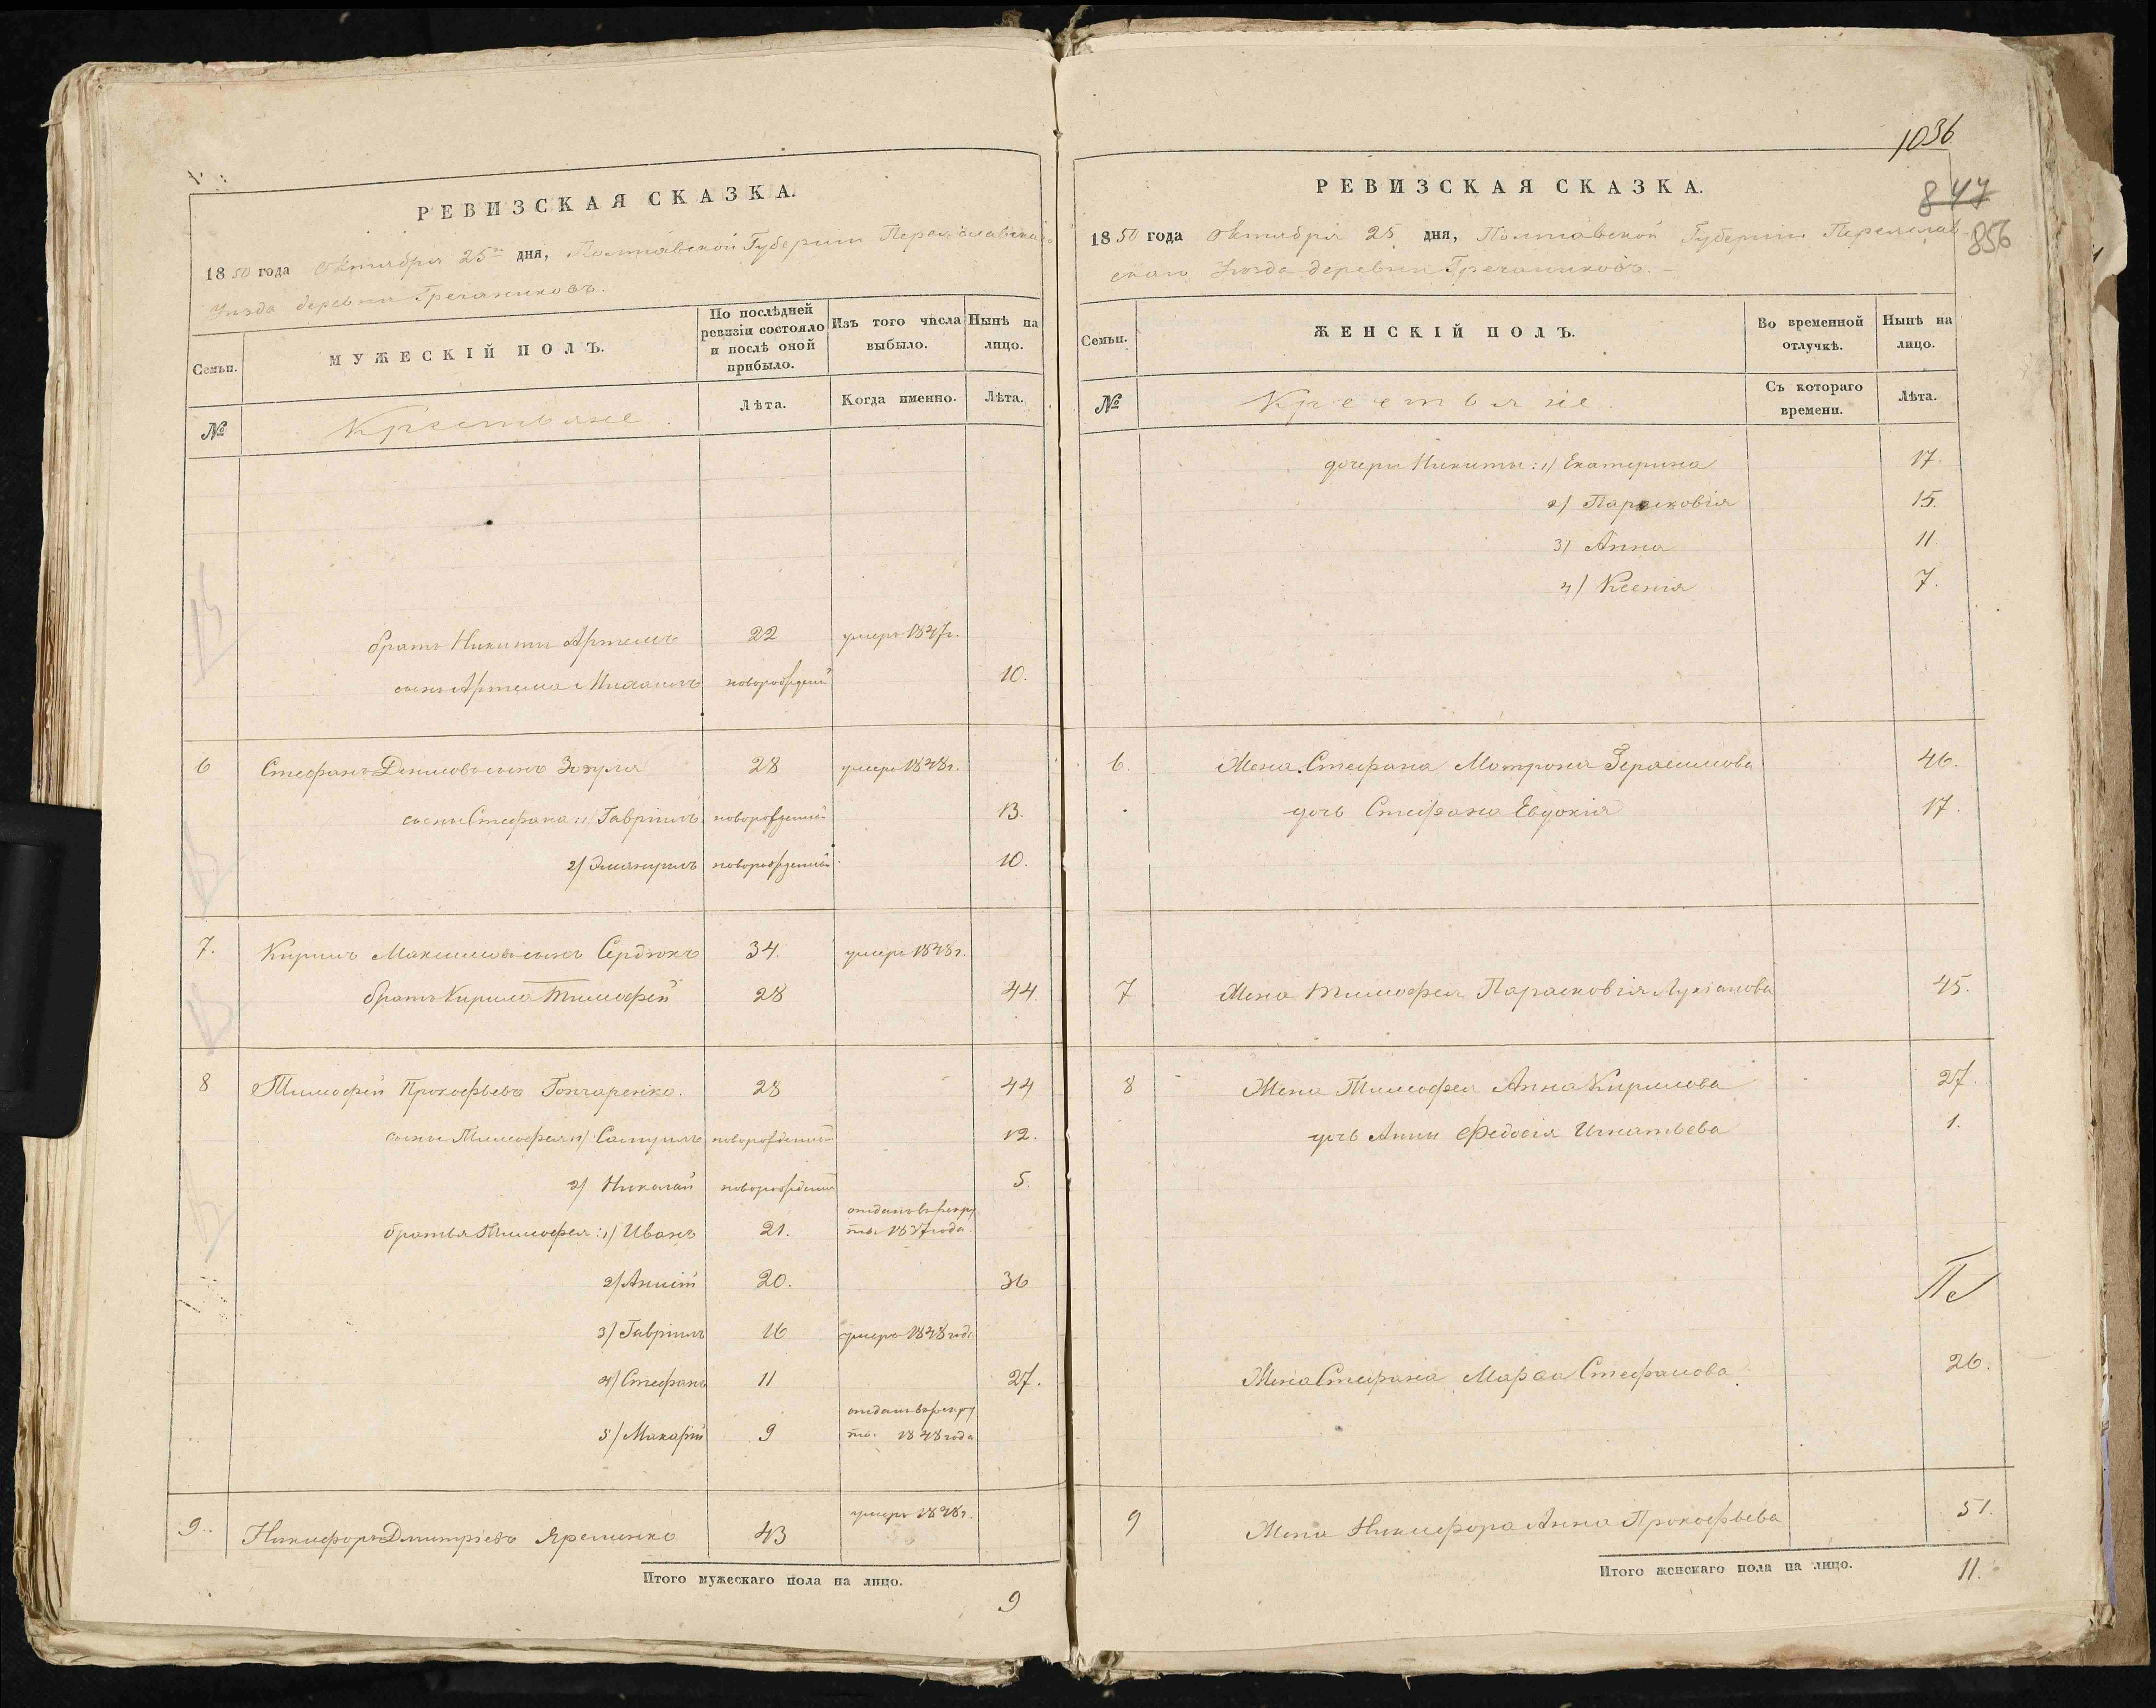 РЕВИЗСКАЯ СКАЗКА.
1850 года Октября 25го дня, Полтавской Губернии Переяславскаго
Уѣзда деревни Гречаниковъ.
Семьи.
МУЖЕСКІЙ ПОЛЪ.
По послѣдней ревизіи состояло и послѣ оной прибыло.
Изъ того числа выбыло.
Нынѣ на лицо.
№
Крестьяне.
Лѣта.
Когда именно.
Лѣта.
братъ Никиты Артемъ 22 умеръ 1847г.
сынъ Артема Михаилъ новорожденный 10.
6 Стефанъ Денисовъ сынъ Зозуля 28 умеръ 1848г.
сыны Стефана: 1) Гавріилъ новорожденный 13.
2) Эмануилъ новорожденный 10.
7. Кирилъ Максимовъ сынъ Сердюкъ 34. умеръ 1848г.
братъ Кирила Тимофей 28 44.
8 Тимофей Прокофьевъ Гончаренко. 28 44
сыны Тимофея: 1) Самуилъ новорожденный 12.
2) Николай новорожденный 5.
братья Тимофея: 1) Иванъ 21. отданъ въ рекру
ты 1837 года.
2) 20. 36
3) Гавріилъ 16 умеръ 1848 года
4) Стефанъ 11 27.
5) Макарій 9 отданъ въ рекру
ты 1848 года
9. Никифоръ Дмитріевъ Яременко 43 умеръ 1848г.
Итого мужескаго пола на лицо.
9
1036
847
856
РЕВИЗСКАЯ СКАЗКА.
1850 года Октября 25 дня, Полтавской Губерніи Переяслав-
скаго Уѣзда деревни Гречаниковъ.
Семьи.
ЖЕНСКІЙ ПОЛЪ.
Во временной отлучкѣ.
Нынѣ на лицо.
№
Крестьяне.
Съ котораго времени.
Лѣта.
дочери Никиты: 1) Екатерина 17.
2) Парасковія 15.
3) Анна 11.
4) Ксенія 7.
6. Жена Стефана Матрона Герасимова 46.
дочь Стефана Евдокія 17.
7 Жена Тимофея Парасковія Лукіанова 45.
8 Жена Тимофея Анна Кирилова 27.
дочь Анны Федосія Игнатьева 1.
Жена Стефана Марѳа Стефанова. 26.
9 Жена Никифора Анна Прокофьева 51.
Итого женскаго пола на лицо.
11.